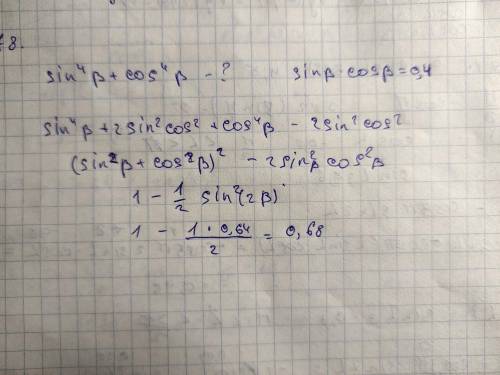 8.
sin⁴β + cos⁴β - ? sinβ·cosβ = 0,4
sin⁴β + 2sin²cos² + cos⁴β - 2sin²cos²
(sin²β + cos²β)² - 2sin²β cos²β
1 - 1/2 sin²(2β)
1 - 1·0,64/2 = 0,68